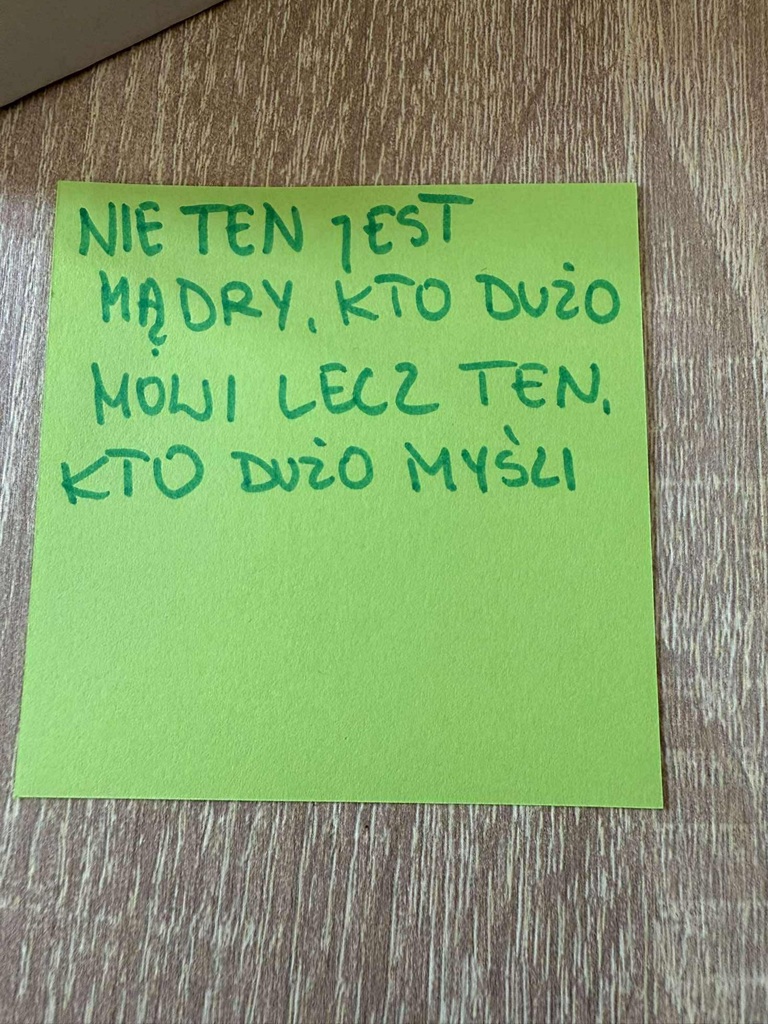 NIE TEN JEST
MĄDRY, KTO DUŻO
MOWI LECZ TEN,
KTO DUŻO MYŚLI